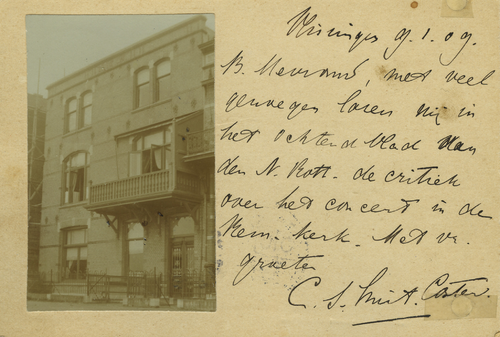 g. 1. 09.
B. Mevrouw, met veel
genoegen lazen wij in
het ochtendblad van
den N. Rott. de critiek
over het concert in de
Rem. kerk. Met vr.
groeten
C. S.